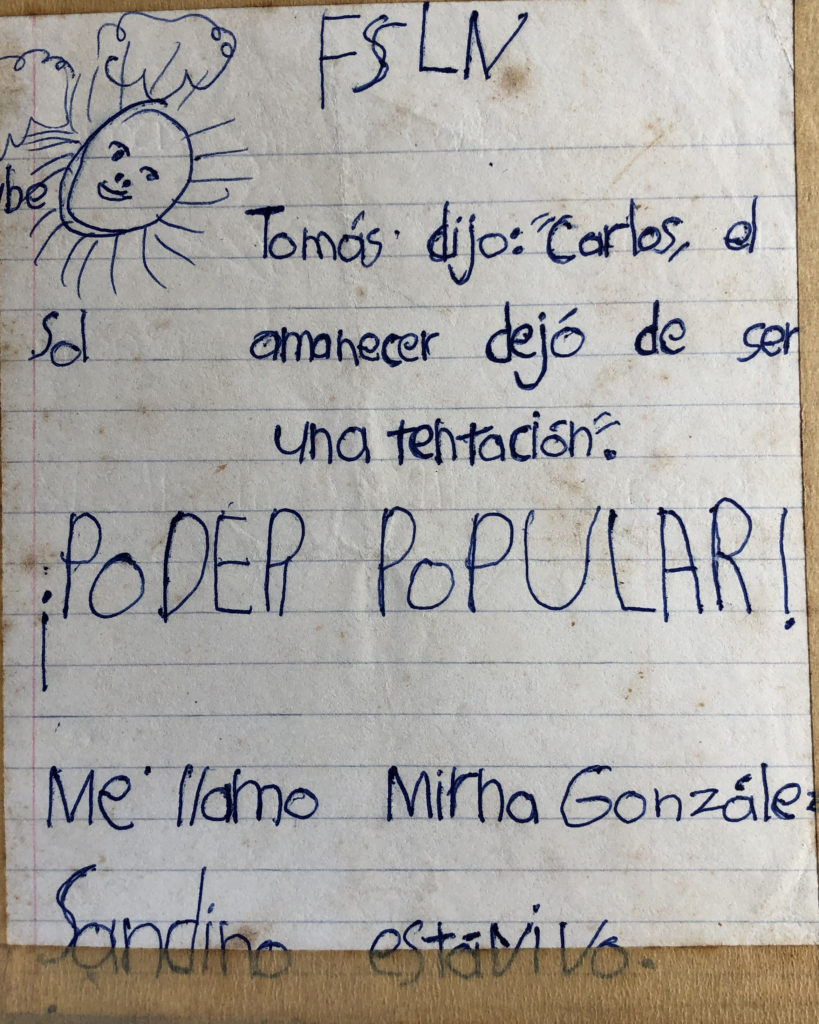 FSLN
be
Tomás dijo: "Carlos, el
Sol
amanecer dejó de ser
una tentación".
¡PODER POPULAR!
Me llamo Mirha González
Sandino está vivo.